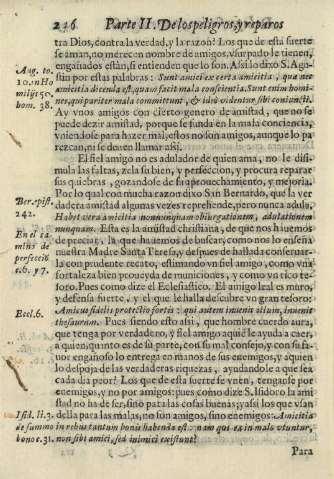 216 Parte II. De los peligros, y reparos
tra Dios, contra la verdad, y la razon? Los que de esta suerte
se aman, no merecen nombre de amigos, vsurpado le tienen,
engañados estàn, si entienden que lo son. Assi lo dixo S. Agus-
Aug. to. tin por estas palabras: Sunt amici ex certa amicitia, que nec
10. in Ho amicitia dicenda est, quam facit mala conscientia. Sunt enim homi-
milijs 50. nes, qui pariter mala committunt, & ideò videntur sibi coniuncti.
hom. 38. Ay vnos amigos con cierto genero de amistad, que no se
puede dezir amistad, porque se funda en la mala conciencia,
vniendose para hazer mal, estos no son amigos, aunque lo pa-
rezcan, ni se deven llamar assi.
El fiel amigo no es adulador de quien ama, no le dissi-
mula las faltas, zela su bien, y perfeccion, y procura reparar
sus quiebras, gozandose de su aprouechamiento, y mejoria.
Ber. epist. Por lo qual con mucha razon dixo San Bernardo, que la ver-
242. dadera amistad algunas vezes reprehende, pero nunca adula,
Habet vera amicitia nonnunquam obiurgationem, adulationem
nunquam. Esta es la amistad christiana, de que nos hauemos
En el ca de preciar, la que hauemos de buscar, como nos lo enseña
mino de nuestra Madre Santa Teresa, despues de hallada conseruar-
perfeciō la con prudente recato, estimando vn fiel amigo, como vna
c. 6. y 7. fortaleza bien proueyda de municiones, y como vn rico te-
soro. Pues como dize el Eclesiastico. El amigo leal es muro,
y defensa fuerte, y el que le halla descubre vn gran tesoro:
Eccl. 6. Amicus fidelis protectio fortis: qui autem inuenit illum, inuenit
thesaurum. Pues siendo esto assi, que hombre cuerdo aura,
que tenga por verdadero, y fiel amigo aquel le ayuda a caer,
a quien, quanto es de su parte, con su mal consejo, y con su fa-
uor engañoso lo entrega en manos de sus enemigos, y a quien
lo despoja de las verdaderas riquezas, ayudandole a que sea
cada dia peor? Los que de esta suerte se vnen, tenganse por
enemigos, y no por amigos: pues como dize S. Isidoro la ami
stad no ha de ser, sino para las cosas buenas; y assi los que vsan
Isid. li. 3. della para las malas, no son amigos, sino enemigos: Amicitia
de summo in rebus tantum bonis habenda est: nam qui ea in malo vtuntur,
bono c. 31. non sibi amici, sed inimici existunt.
Para